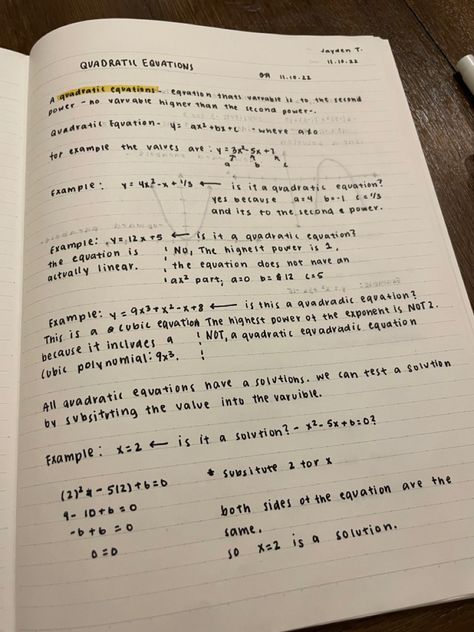 Jayden T.
11.10.22
QUADRATIC EQUATIONS
OR 11.10.22
A quadratic equations - eqration thats varvable is to the second
power - no varvable higher than the second power-.
Quadratic Equation - y= ax²+bx+c - where a≠0
for example the valves are : y=3x²-5x+7
a b c
Example : y= 4x²-x+1/3 ← is it a quadratic equation?
yes because a=4 b=-1 c=1/3
and its to the second & power.
Example: y=12x+5 ← is it a quadratic equation?
the equation is
actually linear.
No, The highest power is 1,
the equation does not have an
ax² part, a=0 b=12 c=5
Example: y=9x³+x²-x+8 ← is this a quadradic equation?
This is a cubic equation
because it includes a
cubic polynumial: 9x³.
The highest power of the exponent is NOT 2.
NOT, a quadratic equadradic equation
All quadratic equations have a solutions. we can test a solution
by subsitvting the value into the varuible.
Example : x=2 ← is it a solution? - x²-5x+6=0?
(2)² - 5(2)+6=0
4- 10+6=0
-6+6=0
0=0
* subsitute 2 for x
both sides of the equation are the
same.
so x=2 is a solution.